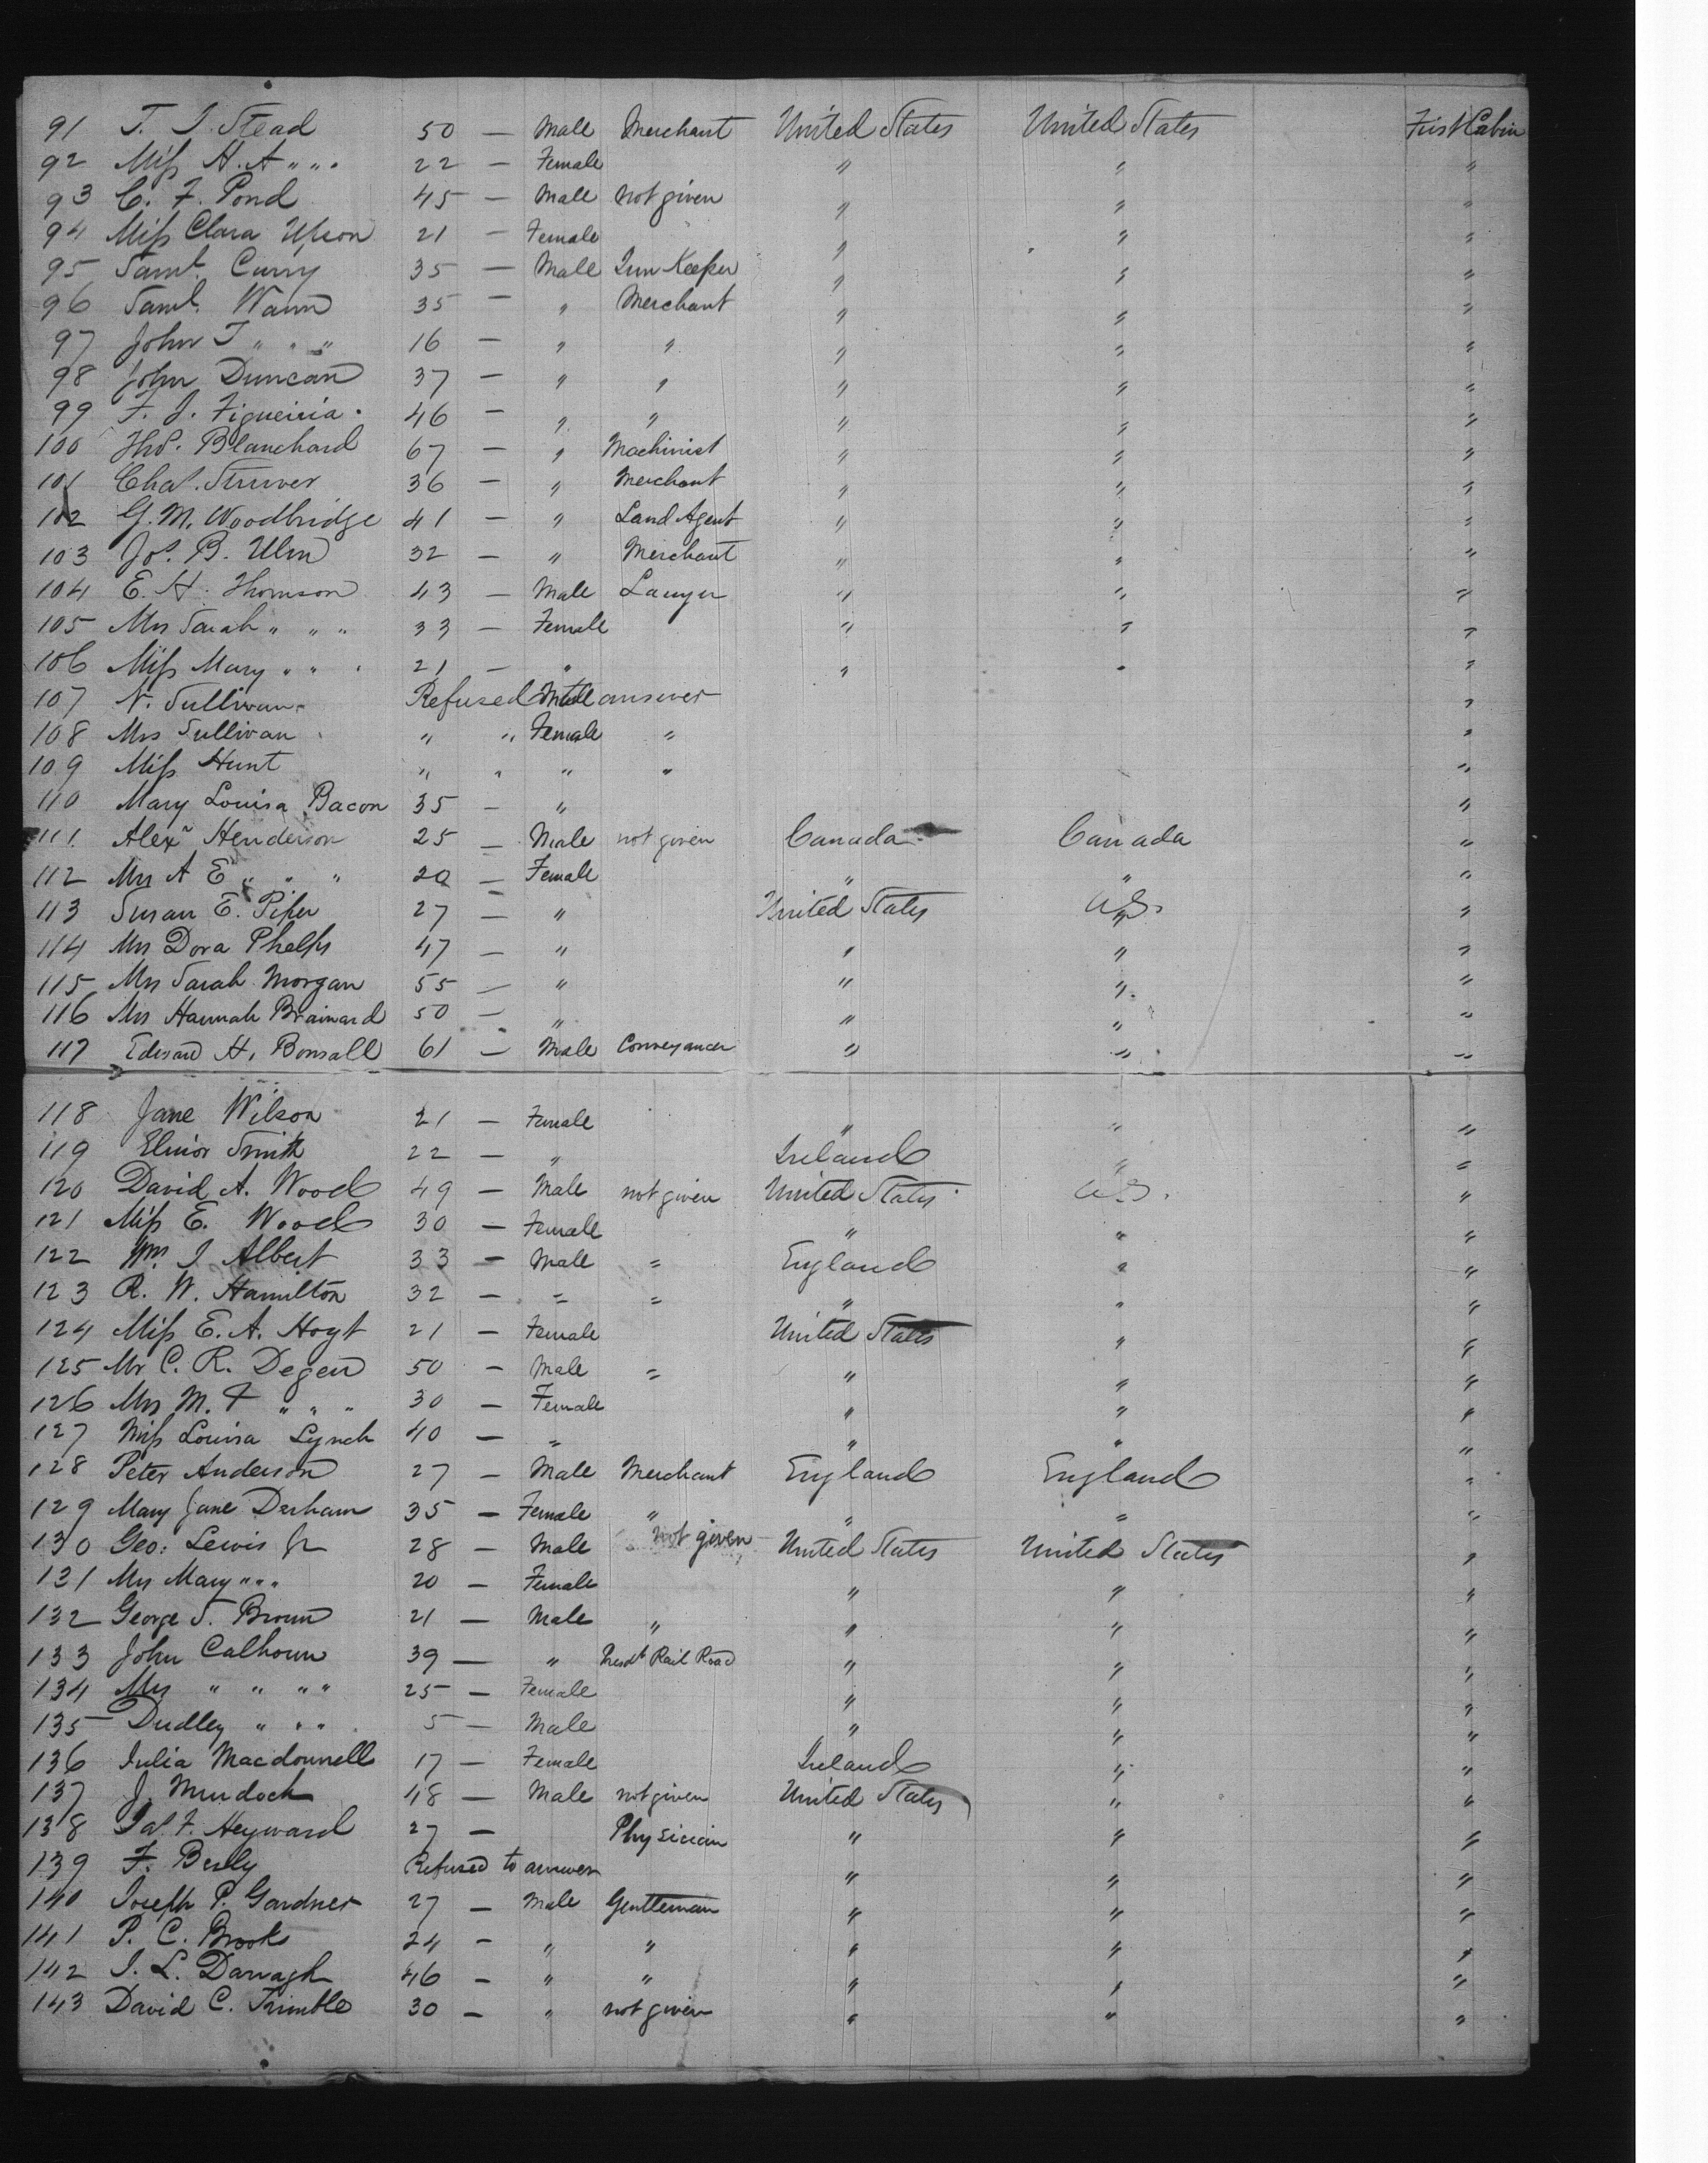 91 T. J. Stead 50 — Male Merchant United States United States First Cabin
92 Miss H. A " " " 22 — Female " " "
93 C. F. Pond 45 — Male not given " " "
94 Miss Clara Upson 21 — Female " " "
95 Saml. Curry 35 — Male Inn Keeper " " "
96 Saml. Wann 35 — " Merchant " " "
97 John T " " " 16 — " " " " "
98 John Duncan 37 — " " " " "
99 F. J. Figueiria 46 — " " " " "
100 Thos. Blanchard 67 — " Machinist " " "
101 Chas. Struver 36 — " Merchant " " "
102 G. M. Woodbridge 41 — " Land Agent " " "
103 Jos. B. Ulm 32 — " Merchant " " "
104 E. H. Thomson 43 — Male Lawyer " " "
105 Mrs Sarah " " " 33 — Female " " "
106 Miss Mary " " " 21 — " " " "
107 N. Sullivan Refused Male answer "
108 Mrs Sullivan " " Female " "
109 Miss Hunt " " " " "
110 Mary Louisa Bacon 35 — " "
111 Alexr Henderson 25 — Male not given Canada Canada "
112 Mrs A E " " " 20 — Female " " "
113 Susan E. Piper 27 — " United States U.S. "
114 Mrs Dora Phelps 47 — " " " "
115 Mrs Sarah Morgan 55 — " " " "
116 Mrs Hannah Brainard 50 — " " " "
117 Edward H. Bonsall 61 — Male Conveyancer " " "
118 Jane Wilson 21 — Female " " "
119 Elinor Smith 22 — " Ireland " "
120 David A. Wood 49 — Male not given United States U.S. "
121 Miss E. Wood 30 — Female " " "
122 Wm. J. Albert 33 — Male " England " "
123 R. W. Hamilton 32 — " " " " "
124 Miss E. A. Hoyt 21 — Female United States " "
125 Mr C. R. Degen 50 — Male " " " "
126 Mrs M. F " " " 30 — Female " " "
127 Miss Louisa Lynch 40 — " " " "
128 Peter Anderson 27 — Male Merchant England England "
129 Mary Jane Derham 35 — Female " " " "
130 Geo: Lewis Jr 28 — Male not given United States United States "
131 Mrs Mary " " " 20 — Female " " "
132 George S. Brown 21 — Male " " " "
133 John Calhoun 39 — " Presdt Rail Road " " "
134 Mrs " " " " 25 — Female " " "
135 Dudley " " " 5 — Male " " "
136 Julia Macdonnell 17 — Female Ireland " "
137 J. Murdoch 48 — Male not given United States " "
138 Jas. F. Heyward 27 — Physician " " "
139 F. Refused to answer " " "
140 Joseph P. Gardner 27 — Male Gentleman " " "
141 P. C. Brooks 24 — " " " " "
142 J. L. Darragh 46 — " " " " "
143 David C. Trimble 30 — " not given " " "